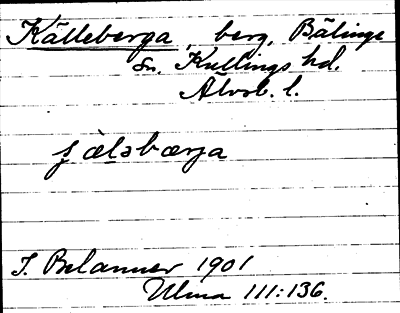 Källeberga, berg, Bälinge
sn. Kullings hd.
Älvsb. l.
ʃàl̥abærja
J. Belanner 1901
Ulma 111:136.